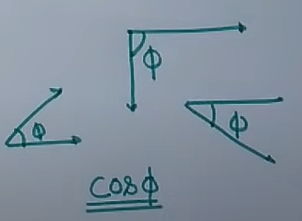 ϕ
ϕ
ϕ
cosϕ